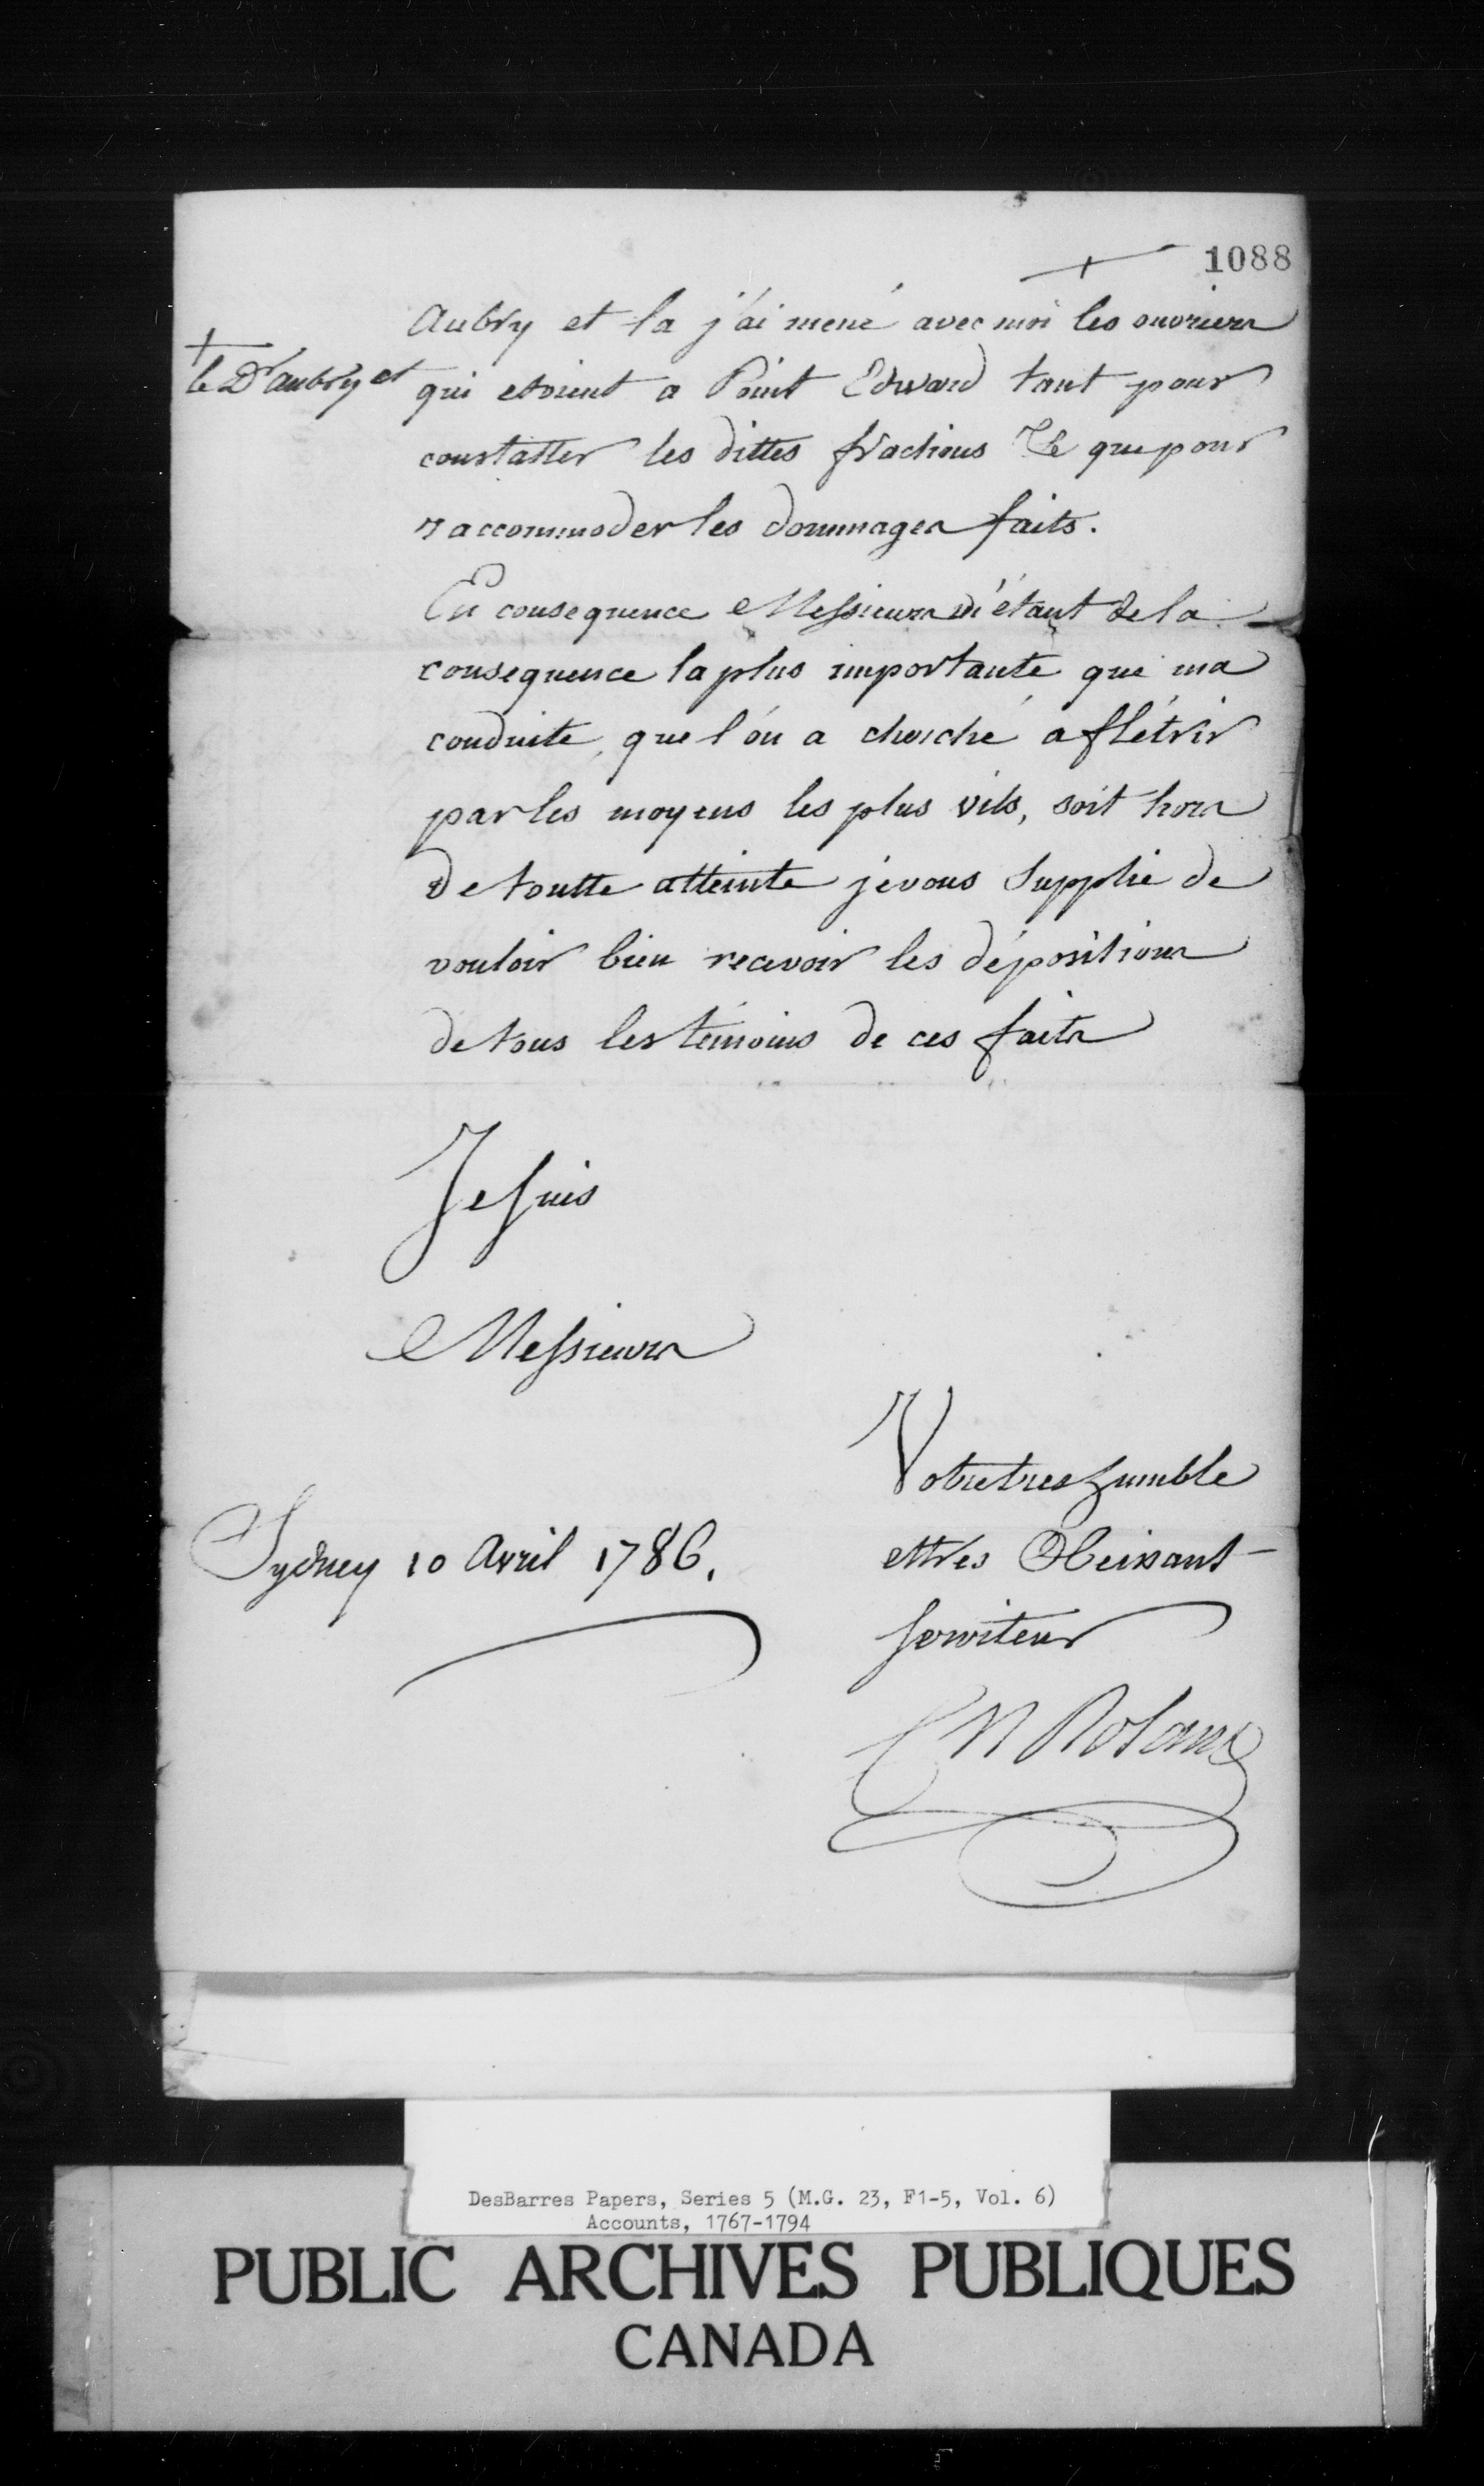 1088
+
Aubry et la j'ai mené avec moi les ouvriers
+
le Dr Aubry et
qui etoient a Point Edward tant pour
constatter les dittes fractions &c que pour
raccommoder les dommages faits.
En consequence Messieurs m'étant de la
consequence la plus importante que ma
conduite, que l'on a cherché a flétrir
par les moyens les plus vils, soit hors
de toutte atteinte je vous supplie de
vouloir bien recevoir les dépositions
de tous les témoins de ces faits
Je suis
Messieurs
Votre tres humble
Sydney 10 Avril 1786.
et trés Obeissant
serviteur
DesBarres Papers, Series 5 (M.G. 23, F1-5, Vol. 6)
Accounts, 1767-1794
PUBLIC ARCHIVES PUBLIQUES
CANADA